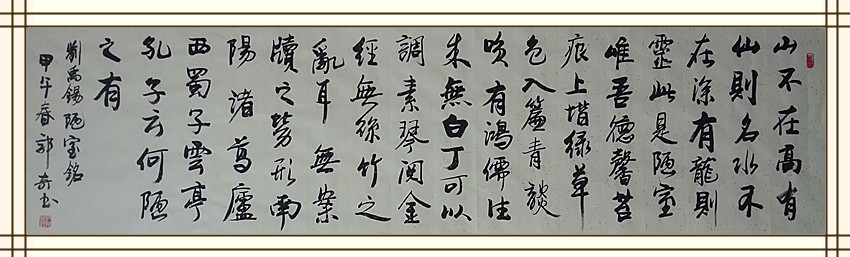 山不在高有
仙則名水不
在深有龍則
靈此是陋室
唯吾德馨苔
痕上堦緑草
色入簾青談
笑有鴻儒往
来無白丁可以
調素琴阅金
經無絲竹之
亂耳無案
牘之勞形南
陽諸葛廬
西蜀子雲亭
孔子云何陋
之有
劉禹錫陋室銘
甲午春郭奇书